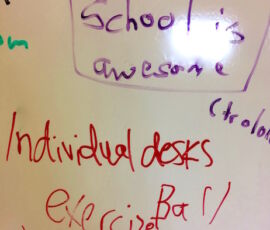 School is
awesome
Individual desks
exercise Ball